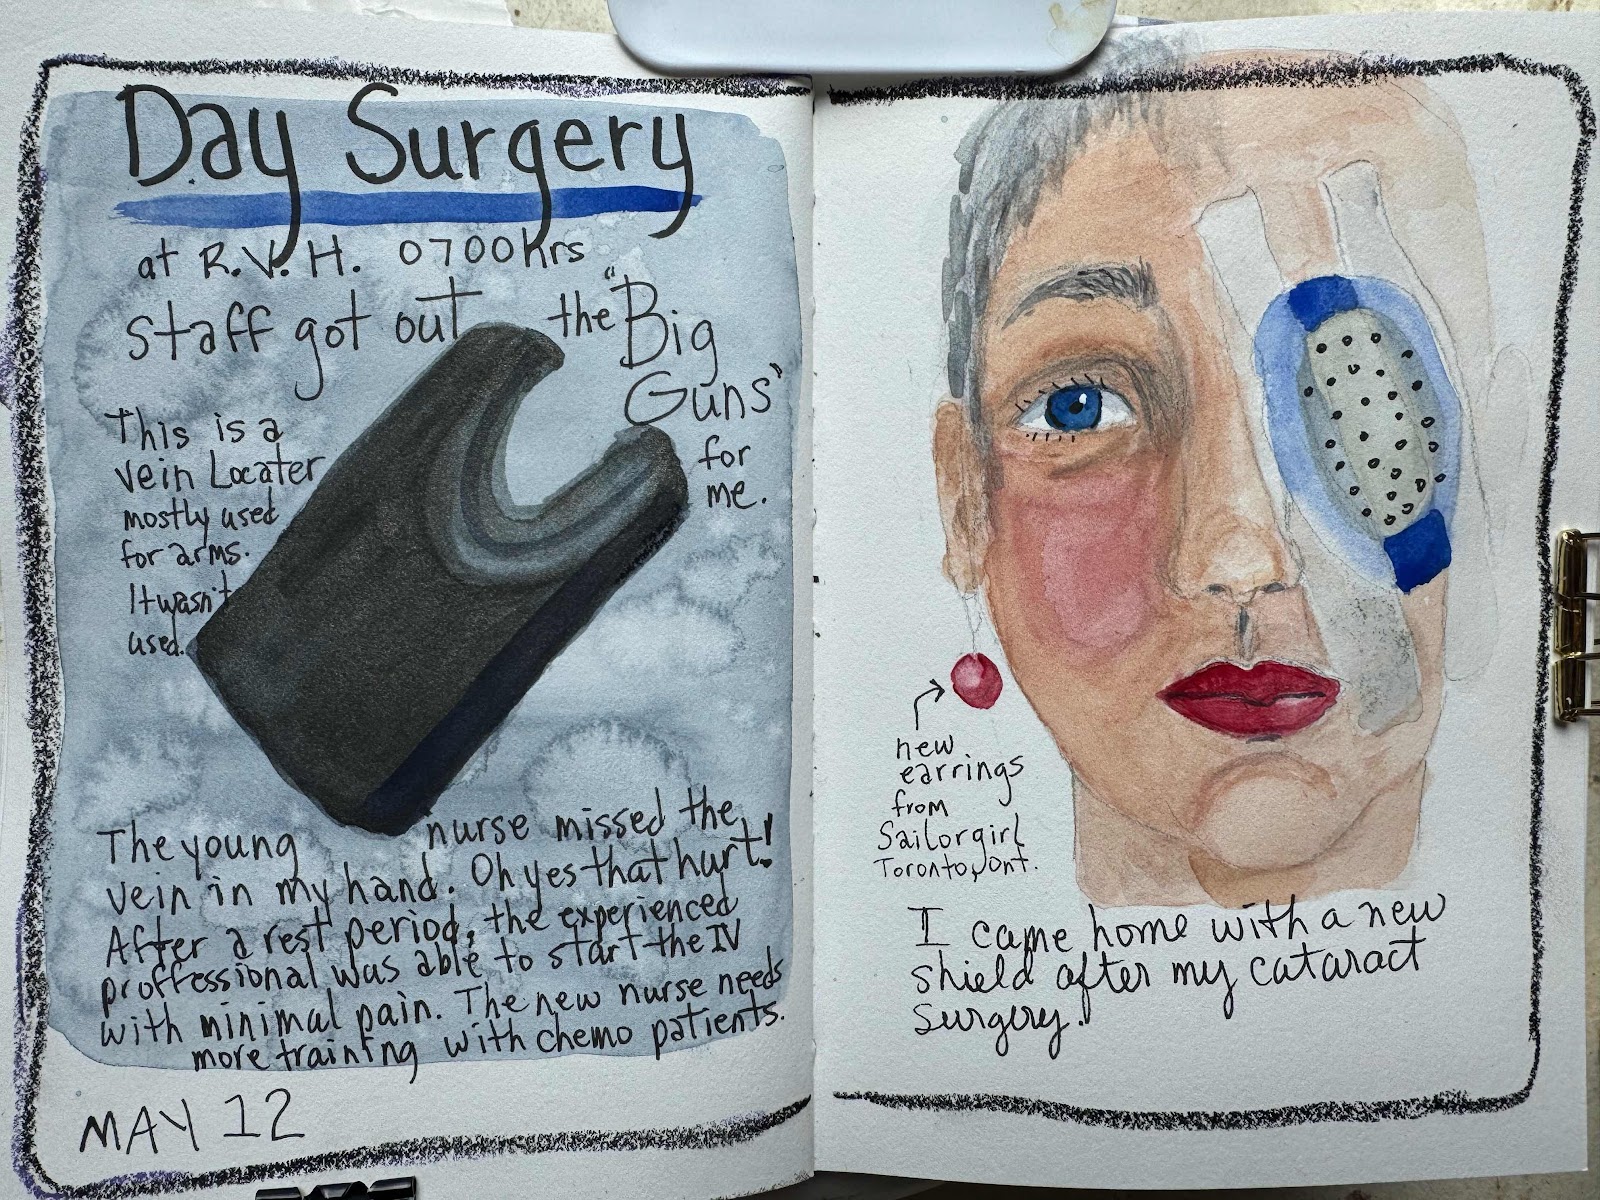 Day Surgery
at R.V.H. 0700hrs
staff got out the "Big
Guns"
for
me.
This is a
vein Locater
mostly used
for arms.
It wasn't
used.
The young nurse missed the
vein in my hand. Oh yes that hurt!
After a rest period, the experienced
proffessional was able to start the IV
with minimal pain. The new nurse needs
more training with chemo patients.
MAY 12
new
earrings
from
Sailorgirl
Toronto, Ont.
I came home with a new
shield after my cataract
surgery.